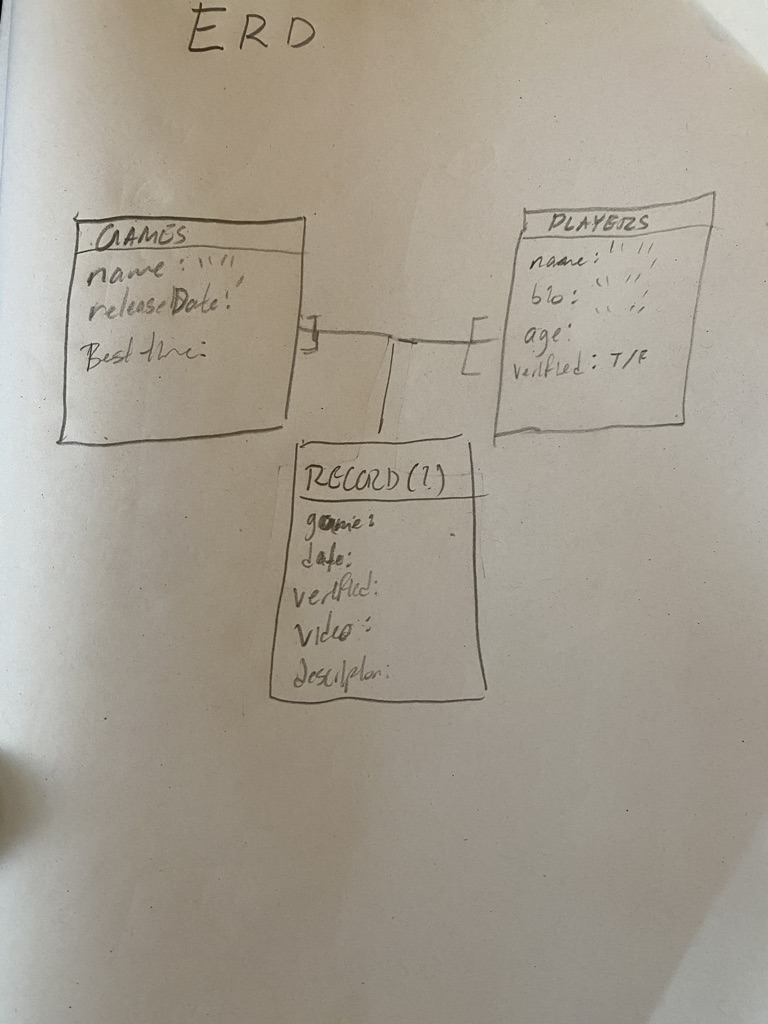 ERD
GAMES
name: " "
releaseDate: '
Best time:
PLAYERS
name: " ",
bio: " ",
age: " "
verified: T/F
RECORD(?)
game:
date:
verified:
video:
description: